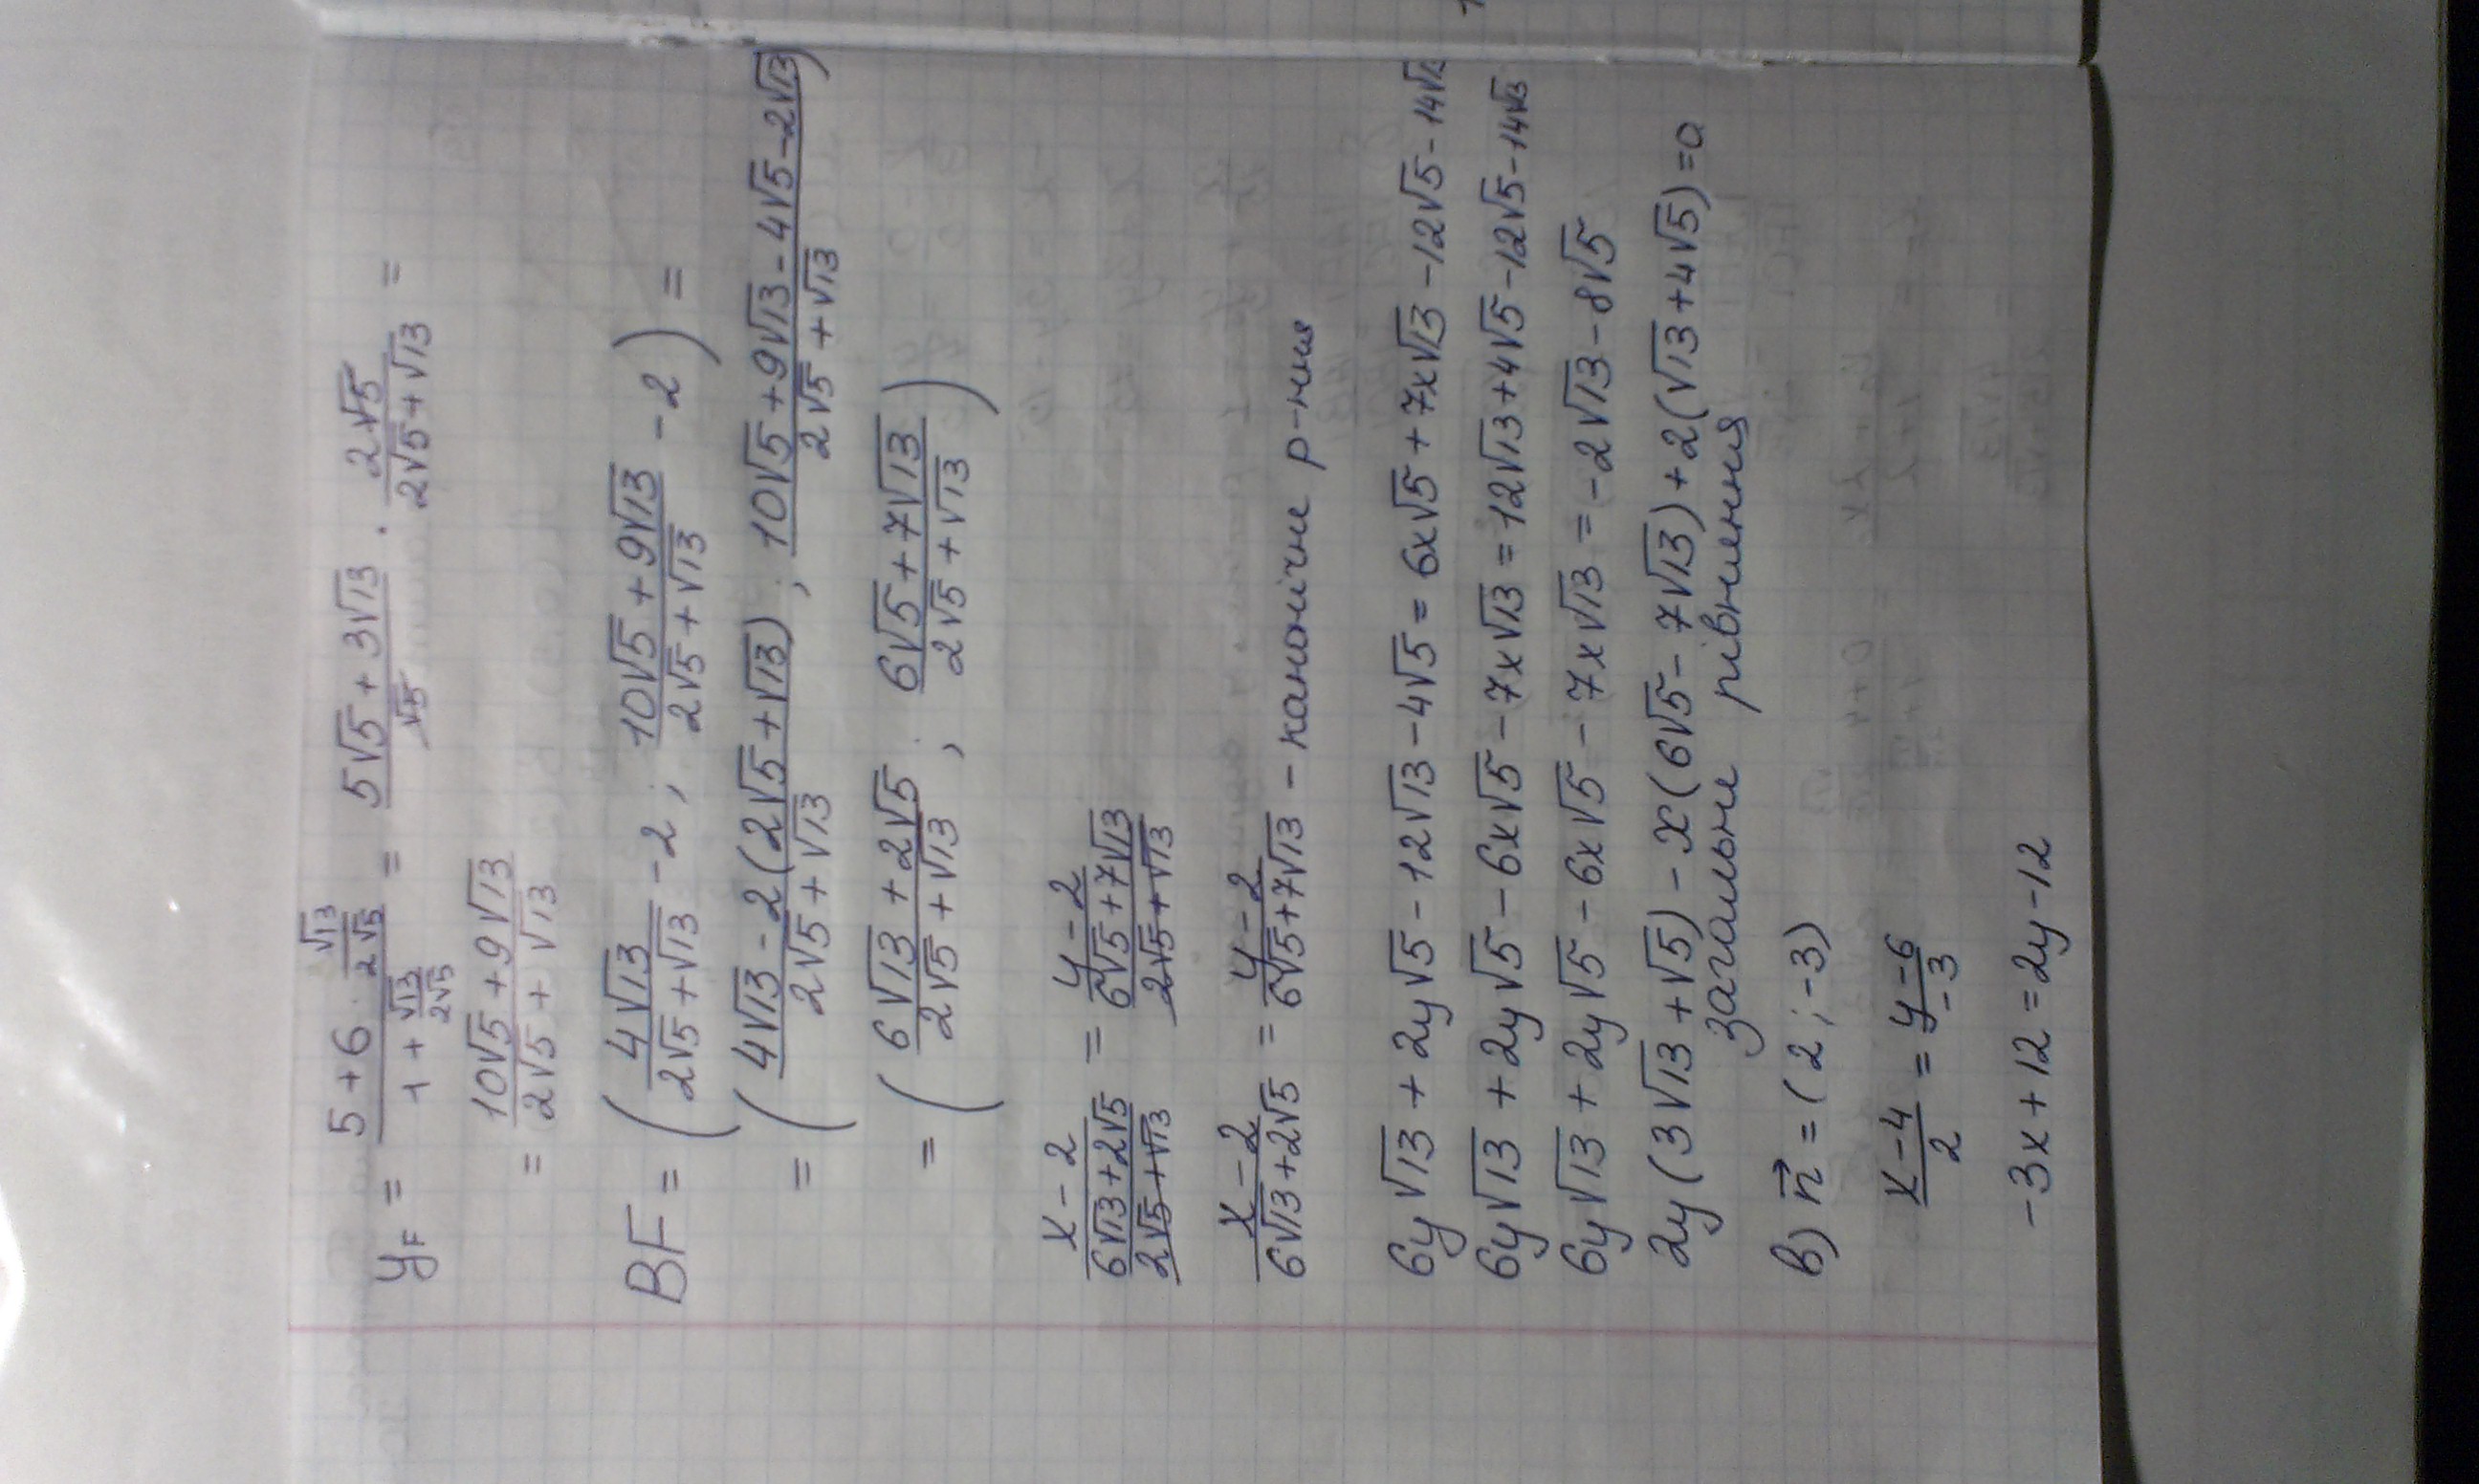 y_F = (5 + 6 · √13/(2√5)) / (1 + √13/(2√5)) = (5√5 + 3√13)/√5 · 2√5/(2√5 + √13) =
= (10√5 + 9√13)/(2√5 + √13)
BF = (4√13/(2√5 + √13) - 2 ; (10√5 + 9√13)/(2√5 + √13) - 2) =
= ((4√13 - 2(2√5 + √13))/(2√5 + √13) ; (10√5 + 9√13 - 4√5 - 2√13)/(2√5 + √13))
= ((6√13 + 2√5)/(2√5 + √13) ; (6√5 + 7√13)/(2√5 + √13))
(x - 2)/((6√13 + 2√5)/(2√5 + √13)) = (y - 2)/((6√5 + 7√13)/(2√5 + √13))
(x - 2)/(6√13 + 2√5) = (y - 2)/(6√5 + 7√13) - канонічне р-ння
6y√13 + 2y√5 - 12√13 - 4√5 = 6x√5 + 7x√13 - 12√5 - 14√13
6y√13 + 2y√5 - 6x√5 - 7x√13 = 12√13 + 4√5 - 12√5 - 14√13
6y√13 + 2y√5 - 6x√5 - 7x√13 = -2√13 - 8√5
2y(3√13 + √5) - x(6√5 - 7√13) + 2(√13 + 4√5) = 0
загальне рівнення
в) n⃗ = (2 ; -3)
(x - 4)/2 = (y - 6)/-3
-3x + 12 = 2y - 12